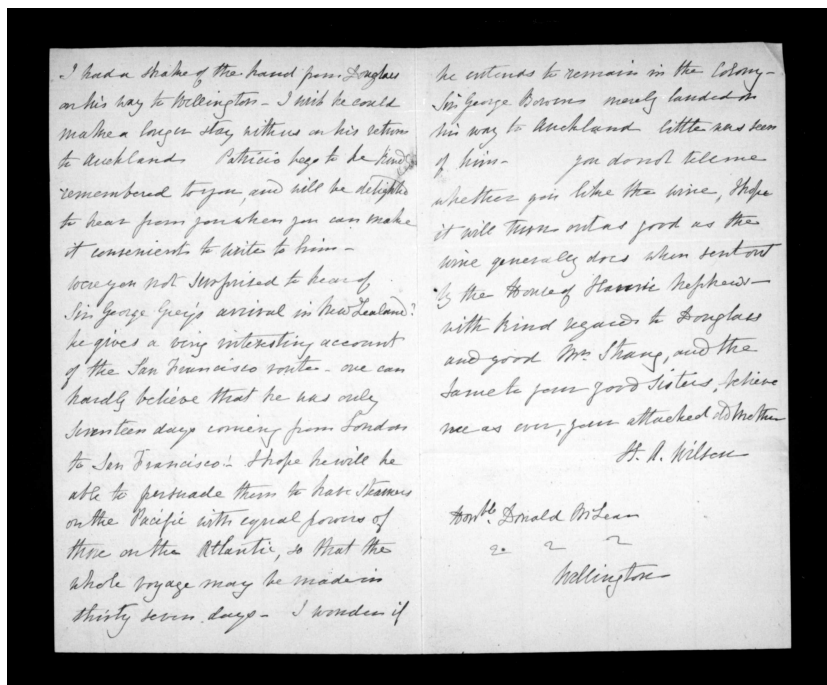 I had a shake of the hand from Douglas
on his way to Wellington - I wish he could
make a longer stay with us on his return
to Auckland Patricio begs to be kindly
remembered to you, and will be delighted
to hear from you when you can make
it convenient to write to him -
were you not surprised to hear of
Sir George Grey's arrival in New Zealand?
he gives a very interesting account
of the San Francisco route - one can
hardly believe that he was only
seventeen days coming from London
to San Francisco! I hope he will be
able to persuade them to have steamers
on the Pacific with equal powers of
those on the Atlantic, so that the
whole voyage may be made in
thirty seven days - I wonder if
he intends to remain in the Colony -
Sir George Bowen merely landed on
his way to Auckland little was seen
of him - you do not tell me
whether you like the wine, I hope
it will turn out as good as the
wine generally does when sent out
by the House of Nephews -
with kind regards to Douglas
and good Mrs Strang, and the
same to your good sisters, believe
me as ever, your attached old Mother
H. A. Wilson
Honble. Donald McLean
Wellington